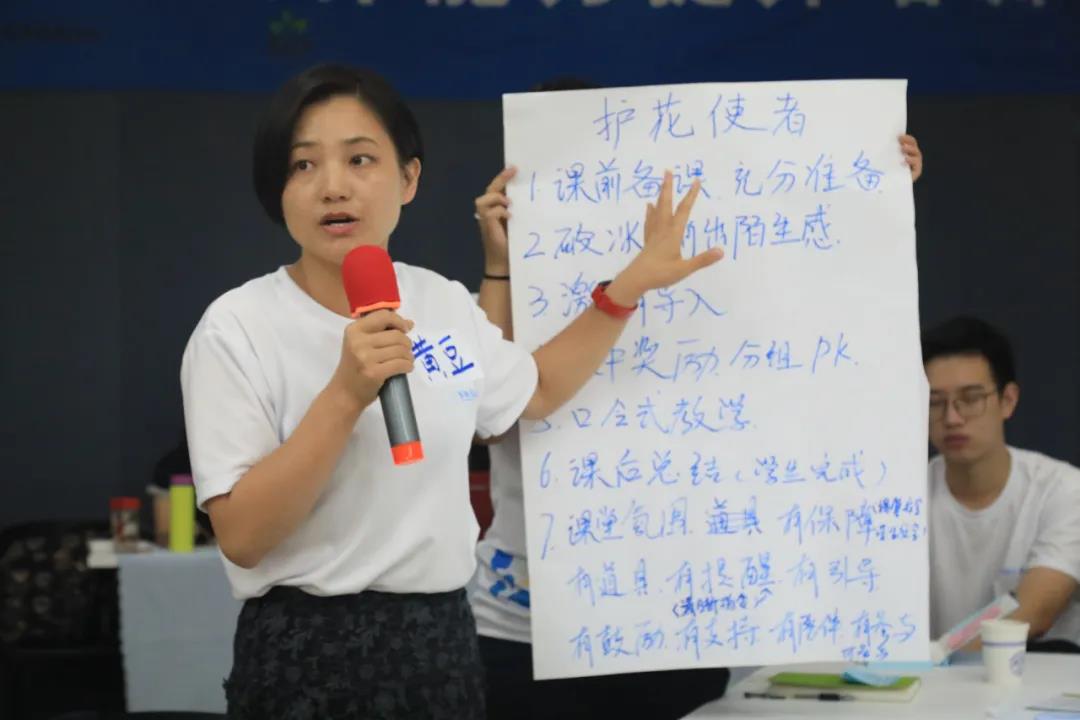 能力提升培训
黄豆
护花使者
1. 课前备课 充分准备
2 破冰 陌生感.
3. 激 导入
中奖励. 分组PK.
5. 口令式教学.
6. 课后总结（学生完成）
7. 课堂氛围. 道具 有保障
有道具. 有提醒. 有引导
有鼓励. 有支持. 有陪伴. 有参与